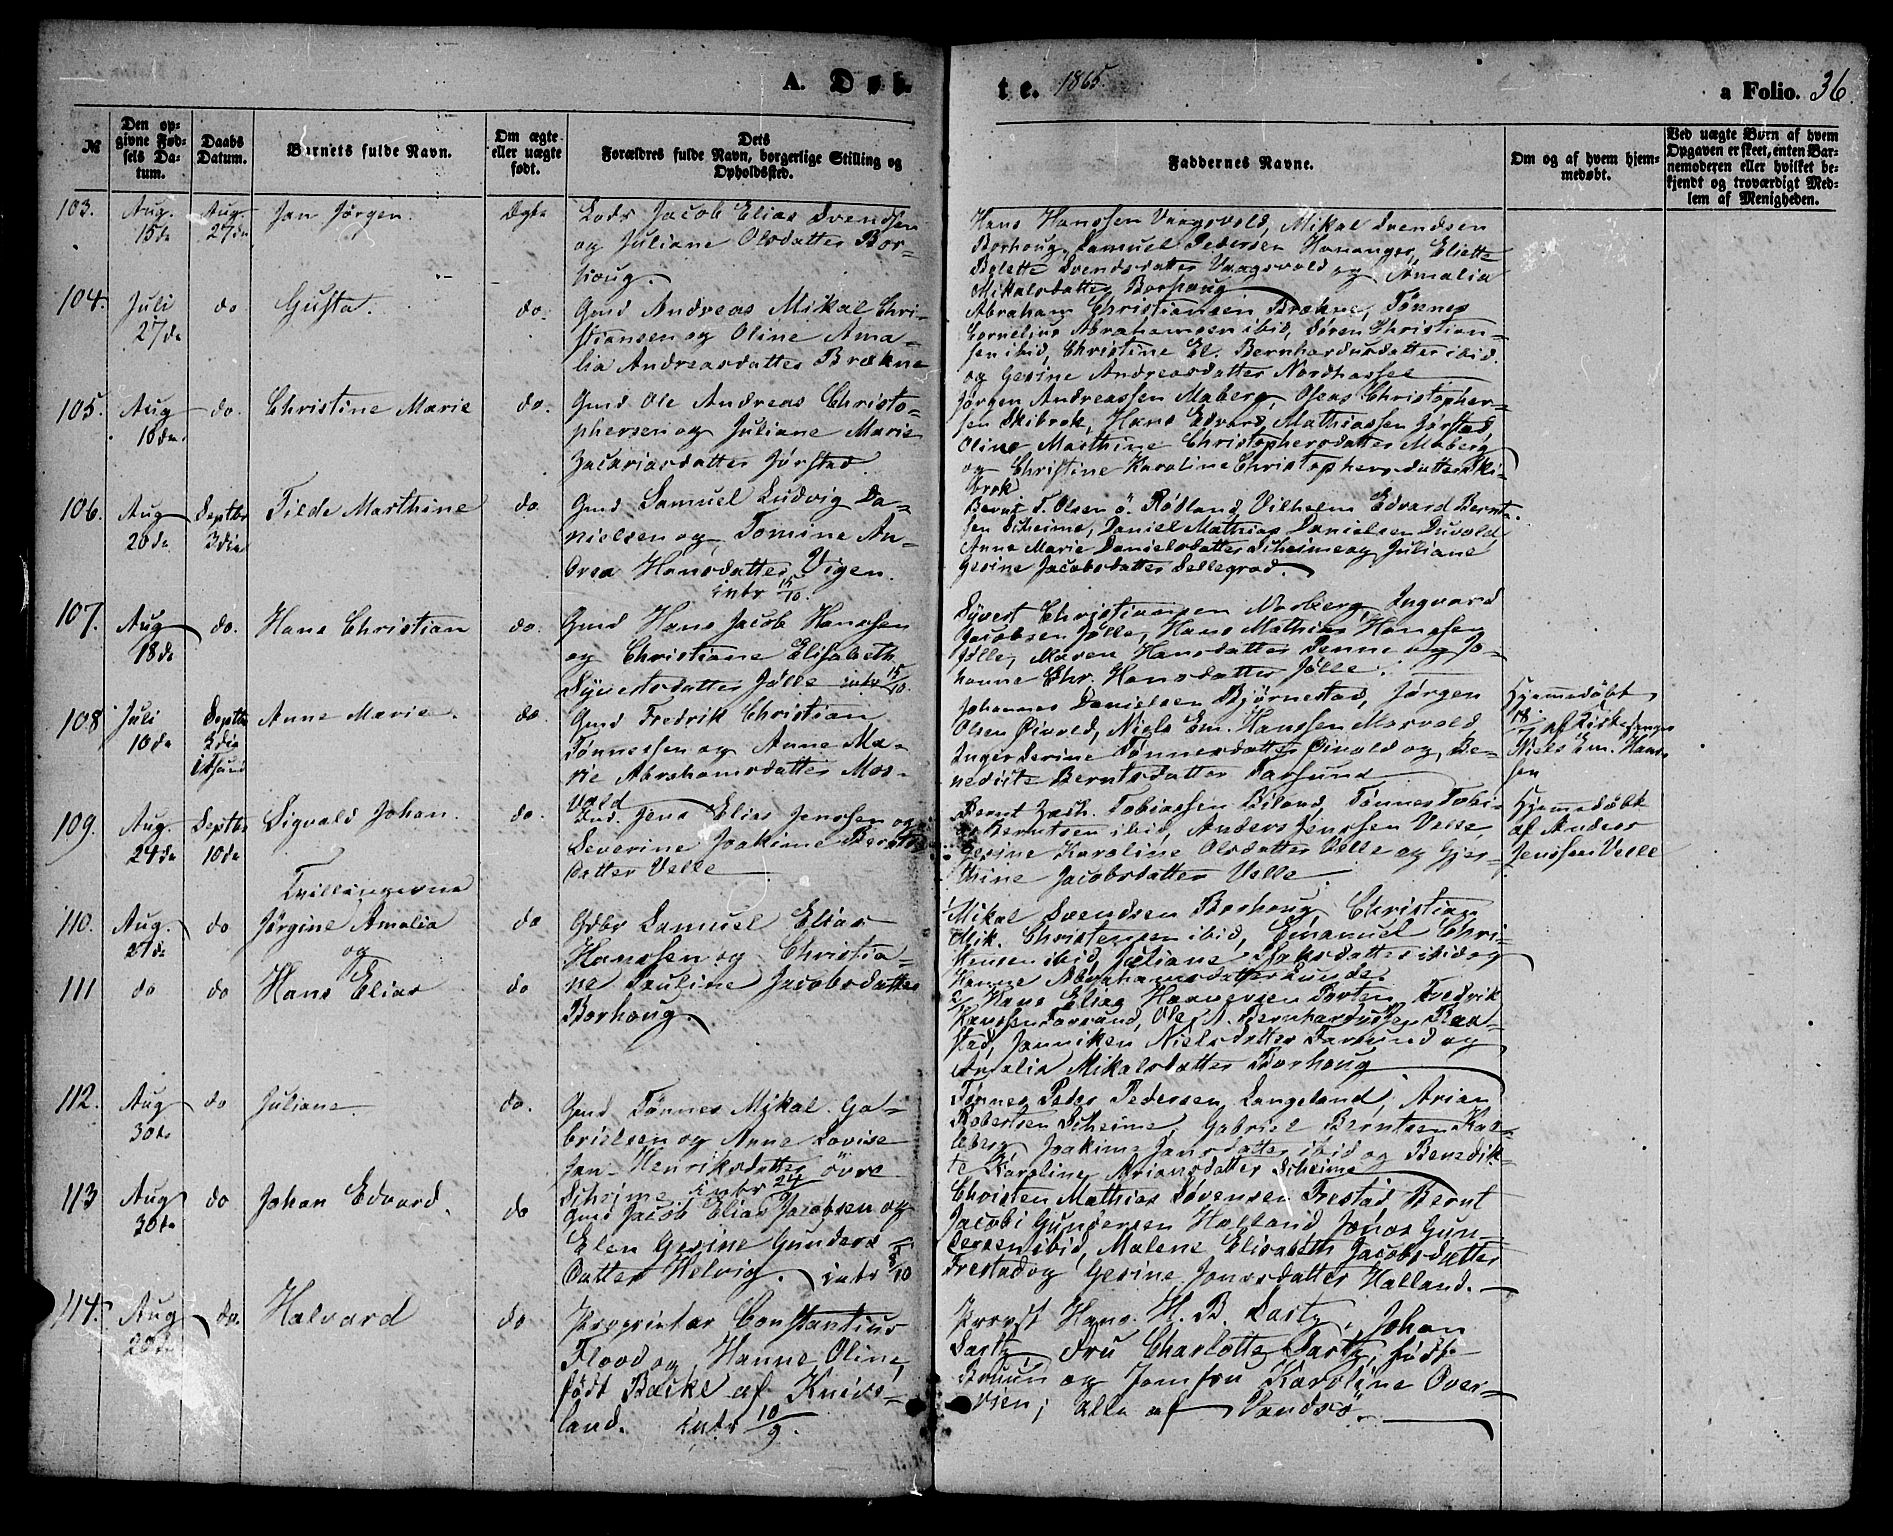 A. Døb-
te. 1865.
a Folio. 36.
№
Den op-
givne Fød-
sels Da-
tum.
Daabs
Datum.
Barnets fulde Navn.
Om ægte
eller uægte
født.
Dets
Forældres fulde Navn, borgerlige Stilling og
Opholdssted.
Faddernes Navne.
Om og af hvem hjem-
medøbt.
Ved uægte Børn af hvem
Opgaven er skeet, enten Bar-
nemoderen eller hvilket be-
kjendt og troværdigt Med-
lem af Menigheden.
103.
Aug.
15de
Aug.
27de
Jan Jørgen.
Ægte
Lods Jacob Elias Svendsen
og Juliane Olsdatter Bor-
houg.
Hans Hanssen Vaagsvold, Mikal Svendsen
Borhoug, Samuel Pedersen Hananger, Eliette
Belette Svendsdatter Vaagsvold og Amalia
Mikalsdatter Borhoug
104.
Juli
27de
do
Gusta.
do.
Gmd Andreas Mikal Chri-
stiansen og Oline Ama-
lia Andreasdatter Brækne
Abraham Christiansen Brækne, Tønnes
Cornelius Abrahamsen ibid, Søren Christian-
sen ibid, Christine El. Bernhardusdatter ibid.
og Gesine Andreasdatter Nordhassel
105.
Aug
10de
do.
Christine Marie
do.
Gmd. Ole Andreas Christo-
phersen og Juliane Marie
Zacariasdatter Jørstad.
Jørgen Andreassen Maberg, Oseas Christopher-
sen Skibrok, Hans Edvard Mathiassen Jørstad
Oline Marthine Christophersdatter Maberg
og Christine Karoline Christophersdatter Ski-
brok
106.
Aug
20de
Septbr
3die
Tilde Marthine
do.
Gmd Samuel Ludvig Da-
nielsen og Tomine An-
drea Hansdatter Vigen.
intr 15/10.
Bernt T. Olsen ö. Rødland, Vilhelm Edvard Bernt-
sen Scheime, Daniel Mathias Danielsen Duvold
Anne Marie Danielsdatter Scheime og Juliane
Gesine Jacobsdatter Sellegrod.
107.
Aug
18de
do.
Hans Christian
do.
Gmd Hans Jacob Hanssen
og Christiane Elisabeth
Syvertsdatter Jølle intr 15/10
Syvert Christiansen Morberg, Ingvard
Jacobsen Jølle, Hans Mathias Hanssen
Jølle, Maren Hansdatter Penne og Jo-
hanne Chr. Hansdatter Jølle.
108
Juli
10de
Septbr
3die
i Fsund
Anne Marie.
do.
Gmd Fredrik Christian
Tønnessen og Anne Ma-
rie Abrahamsdatter Mos-
vold
Johannes Danielsen Bjørnestad, Jørgen
Olsen Øivold, Niels Em. Hanssen Mosvold
Inger Serine Tønnesdatter Øivold og Be-
nedicte Berntsdatter Farsund
Hjemmedøbt
af Kirkesanger
Niels Em. Hans-
sen
109.
Aug.
24de
Septbr
10de
Sigvald Johan.
do.
Gmd. Jens Elias Jenssen og
Severine Joakime Bernts-
datter Velle
Bernt Zach. Tobiassen Biland, Tønnes Tobi-
Berntsen ibid, Anders Jenssen Velle
Gesine Karoline Olsdatter Velle og Gjer-
thine Jacobsdatter Velle.
Hjemmedøbt
af Anders
Jenssen Velle
Tvillingerne
110.
Aug.
21de
do
Jørgine Amalia
og
do
Gdbr Samuel Elias
Hanssen og Christia-
ne Pauline Jacobsdatter
Borhoug.
Mikal Svendsen Borhoug, Christian
Mik. Christensen ibid, Emanuel Chri-
stensen ibid, Juliane Isaksdatter ibid og
Hanne Abrahamsdatter Lunde.
111
do
do
Hans Elias
do
Hans Elias Hanversen Porten, Fredrik
Hanssen Farsund, Ole A. Bernhardussen Ræ-
stad, Janniken Nielsdatter Farsund og
Amalia Mikalsdatter Borhoug
112.
Aug
30te
do
Juliane.
do.
Gmd. Tønnes Mikal Ga-
brielsen og Anne Lovise
Jan-Henriksdatter övre
Scheime intr 24
Tønnes Peder Pedersen Langeland, Arian
Robertsen Scheime, Gabriel Berntsen Kal-
leberg, Joakime Jansdatter ibid og Benedik-
te Karoline Ariansdatter Scheime
113
Aug
30te
do
Johan Edvard.
do
Gmd Jacob Elias Jacobsen og
Elen Gesine Gunders-
datter Helvig. intr 8/10
Christen Mathias Sørensen Frestad, Bernt
Jacobi Gundersen Halland, Jonas Gun-
dersen ibid, Malene Elisabeth Jacobsdatter
Frestad og Gesine Jonasdatter Halland.
114.
Aug
20de
do.
Halvard
do
Proprietær Constantius
Flood og Hanne Oline,
født Backe af Knivs-
land. intr 10/9.
Provst Hans H. B. Sartz, Johan
Sartz, Fru Charlotte Sartz, født
Bruun og Jomfru Karoline Over-
vien; Alle af Vandsö.